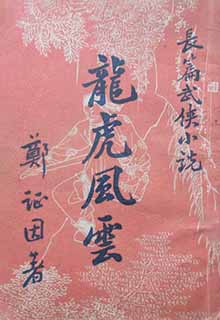 長篇武俠小説
龍虎風雲
鄭証因著